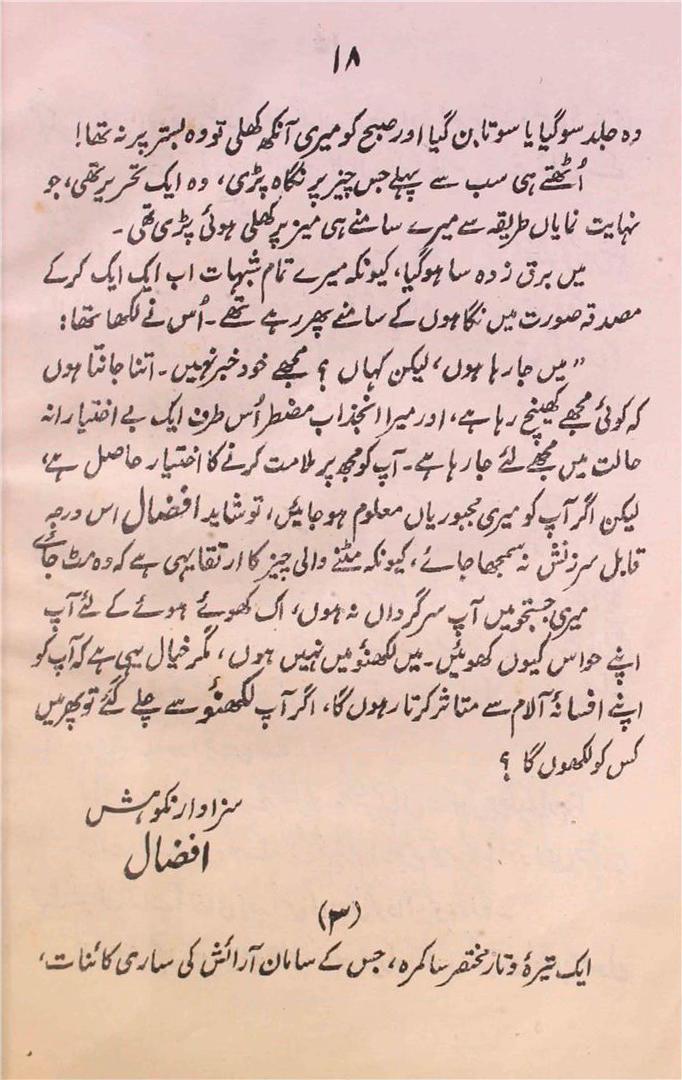 ۱۸
وہ جلد سو گیا یا سوتا بن گیا اور صبح کو میری آنکھ کھلی تو وہ بستر پر نہ تھا!
اُٹھتے ہی سب سے پہلے جس چیز پر نگاہ پڑی، وہ ایک تحریر تھی، جو
نہایت نمایاں طریقہ سے میرے سامنے ہی میز پر کھلی ہوئی پڑی تھی۔
میں برق زدہ سا ہو گیا، کیونکہ میرے تمام شبہات اب ایک ایک کر کے
مصدقہ صورت میں نگاہوں کے سامنے پھر رہے تھے۔ اُس نے لکھا تھا:
”میں جا رہا ہوں، لیکن کہاں ؟ مجھے خود خبر نہیں۔ اتنا جانتا ہوں
کہ کوئی مجھے کھینچ رہا ہے، اور میرا انجذاب مضطر اُس طرف ایک بے اختیارانہ
حالت میں مجھے لئے جا رہا ہے۔ آپ کو مجھ پر ملامت کرنے کا اختیار حاصل ہے،
لیکن اگر آپ کو میری مجبوریاں معلوم ہو جایئں، تو شاید افضال اس درجہ
قابل سرزنش نہ سمجھا جائے، کیونکہ مٹنے والی چیز کا ارتقا یہی ہے کہ وہ مٹ جائے
میری جستجو میں آپ سرگرداں نہ ہوں، اک کھوئے ہوئے کے لئے آپ
اپنے حواس کیوں کھوئیں۔ میں لکھنؤ میں نہیں ہوں، مگر خیال یہی ہے کہ آپ کو
اپنے افسانۂ آلام سے متاثر کرتا رہوں گا، اگر آپ لکھنؤ سے چلے گئے تو پھر میں
کس کو لکھوں گا ؟
سزاوار نکوہش
افضال
(۳)
ایک تیرۂ و تار مختصر سا کمرہ، جس کے سامان آرائش کی ساری کائنات،